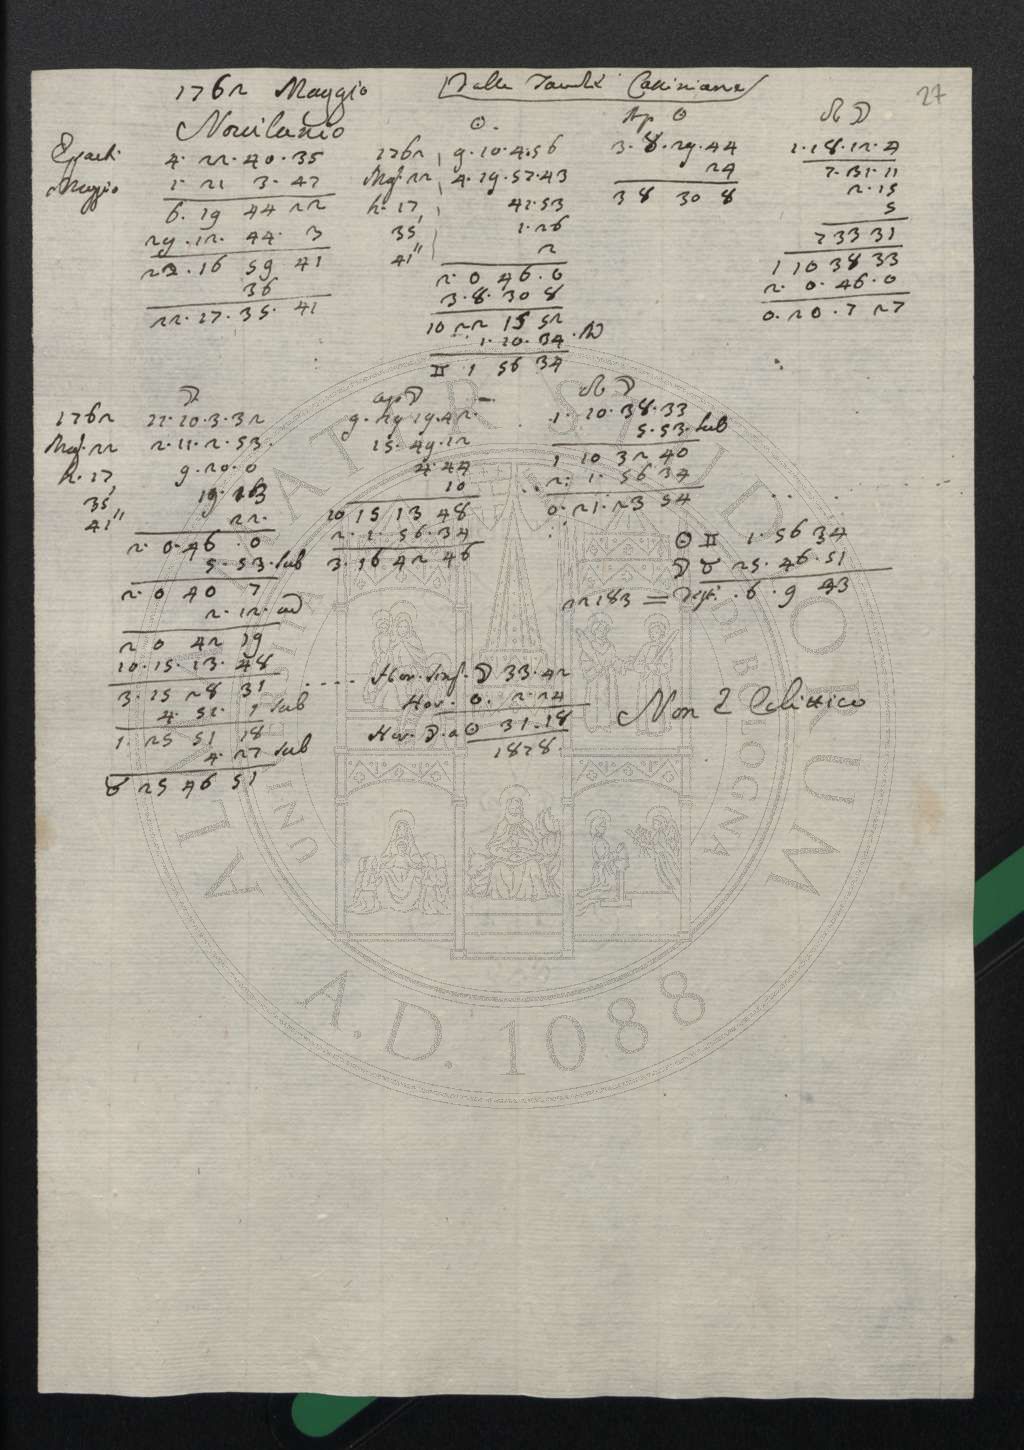 1762 Maggio Dalle Tavole Cassiniane 27
Novilunio ☉. Ap ☉ ☊ ☽
Epact. 4. 22. 40. 35 1762 9. 10. 4. 56 3. 8. 29. 44 1. 18. 12. 4
Maggio 1. 21 3. 47 Mag. 22 4. 19. 57. 43 24 7. 31. 11
6. 19 44 22 h. 17 41. 53 3 8 30 8 2. 15
29. 12. 44. 3 35' 1. 26 5
23. 16 59 41 41'' 2 7 33 31
36 2. 0 46. 0 1 10 38 33
22. 17. 35. 41 3. 8. 30 8 2. 0. 46. 0
10 22 15 52 0. 20. 7 27
1. 10. 34.
♊ 1 56 34
☽ ap ☽ ☊ ☽
1762 11. 20. 3. 32 9. 29 19. 42. 1. 10. 38. 33
Mag. 22 2. 11. 2. 53. 15. 49. 12 5. 53. sub
h. 17 9. 20. 0 4. 44 1 10 32 40
35' 19. 13 10 2. 1. 56 34
41'' 22. 10 15 13 48 0. 21. 23 54
2. 0. 46. 0 2. 1. 56. 34
5. 53. sub 3. 16 42 46 ☉ ♊ 1. 56 34
2. 0 40 7 ☽ ♉ 25. 46. 51
2. 12. ad 22183 = . 6. 9 43
2 0 42 19
10. 15. 13. 48
3. 15 28 31 .... Hor. ☽ 33. 42
4. 51. 1 sub Hor. ☉. 2. 24
1. 25 51 18 Hor. ☽. a ☉ 31. 18
4. 27 sub 1878.
♉ 25 46 51
Non è Eclittico
ALMA MATER STUDIORUM
UNIVERSITÀ DI BOLOGNA
A.D. 1088